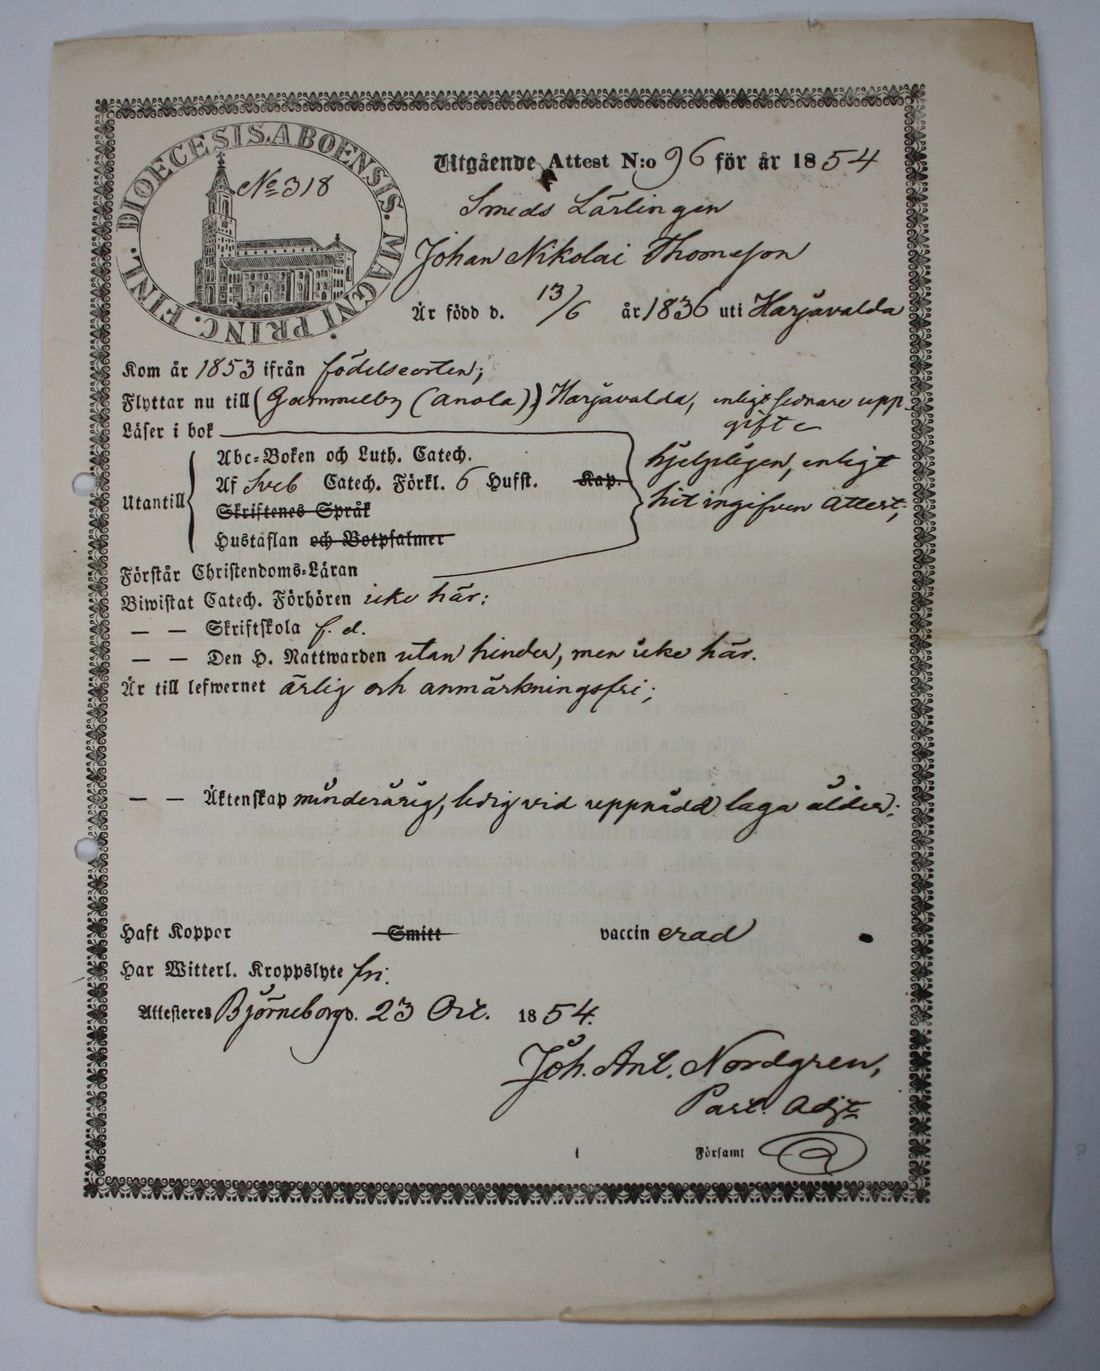 DIOECESIS.ABOENSIS. MAGNI PRINC. FINL.
No 318
Utgående Attest N:o 96 för år 1854
Smeds Lärlingen
Johan Nikolai Thomeson
Är född d. 13/6 år 1836 uti Harjavalda
Kom år 1853 ifrån födelseorten;
Flyttar nu till (Gammelby (Anola)) Harjavalda, enligt sednare upp-
gift
Läser i bok
Abc-Boken och Luth. Catech. hjelpligen, enligt
Utantill Af Sveb Catech. Förkl. 6 Hufst. Kap. hit ingifven Attest;
Skriftenes Språk
Hustaflan och Botpsalmer
Förstår Christendoms-Läran
Biwistat Catech. Förhören icke här;
— — Skriftskola f. d.
— — Den H. Nattwarden utan hinder, men icke här.
Är till lefwernet ärlig och anmärkningsfri;
— — Äktenskap minderårig, ledig vid uppnådd laga ålder.
Haft Koppor Smitt vaccinerad
Har Witterl. Kroppslyte fri.
Attesteres Björneborg d. 23 Oct. 1854.
Joh. Ant. Nordgren,
Past. Adjt
Församl